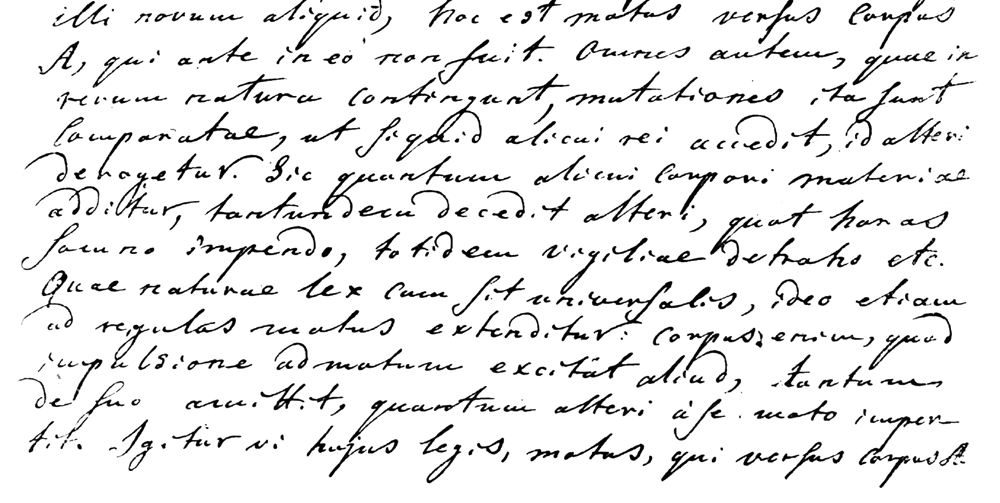 illi novum aliquid, hoc est motus versus corpus
A, qui ante in eo non fuit. Omnes autem, quae in
rerum natura contingunt, mutationes ita sunt
comparatae, ut si quid alicui rei accedit, id alteri
derogetur. Sic quantum alicui corpori materiae
additur, tantundem decedit alteri, quot horas
somno impendo, totidem vigiliae detraho etc.
Quae naturae lex cum sit universalis, ideo etiam
ad regulas motus extenditur: corpus enim, quod
impulsione ad motum excitat aliud, tantum
de suo amittit, quantum alteri à se moto imper-
tit. Igitur vi hujus legis, motus, qui versus corpus A